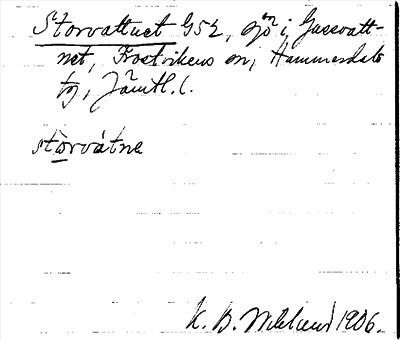 Storvattnet G52, ön i Gussvatt-
net, Frostvikens sn, Hammerdals
tg, Jämtl. l.
stòrvátne
K. B. Wiklund 1906.